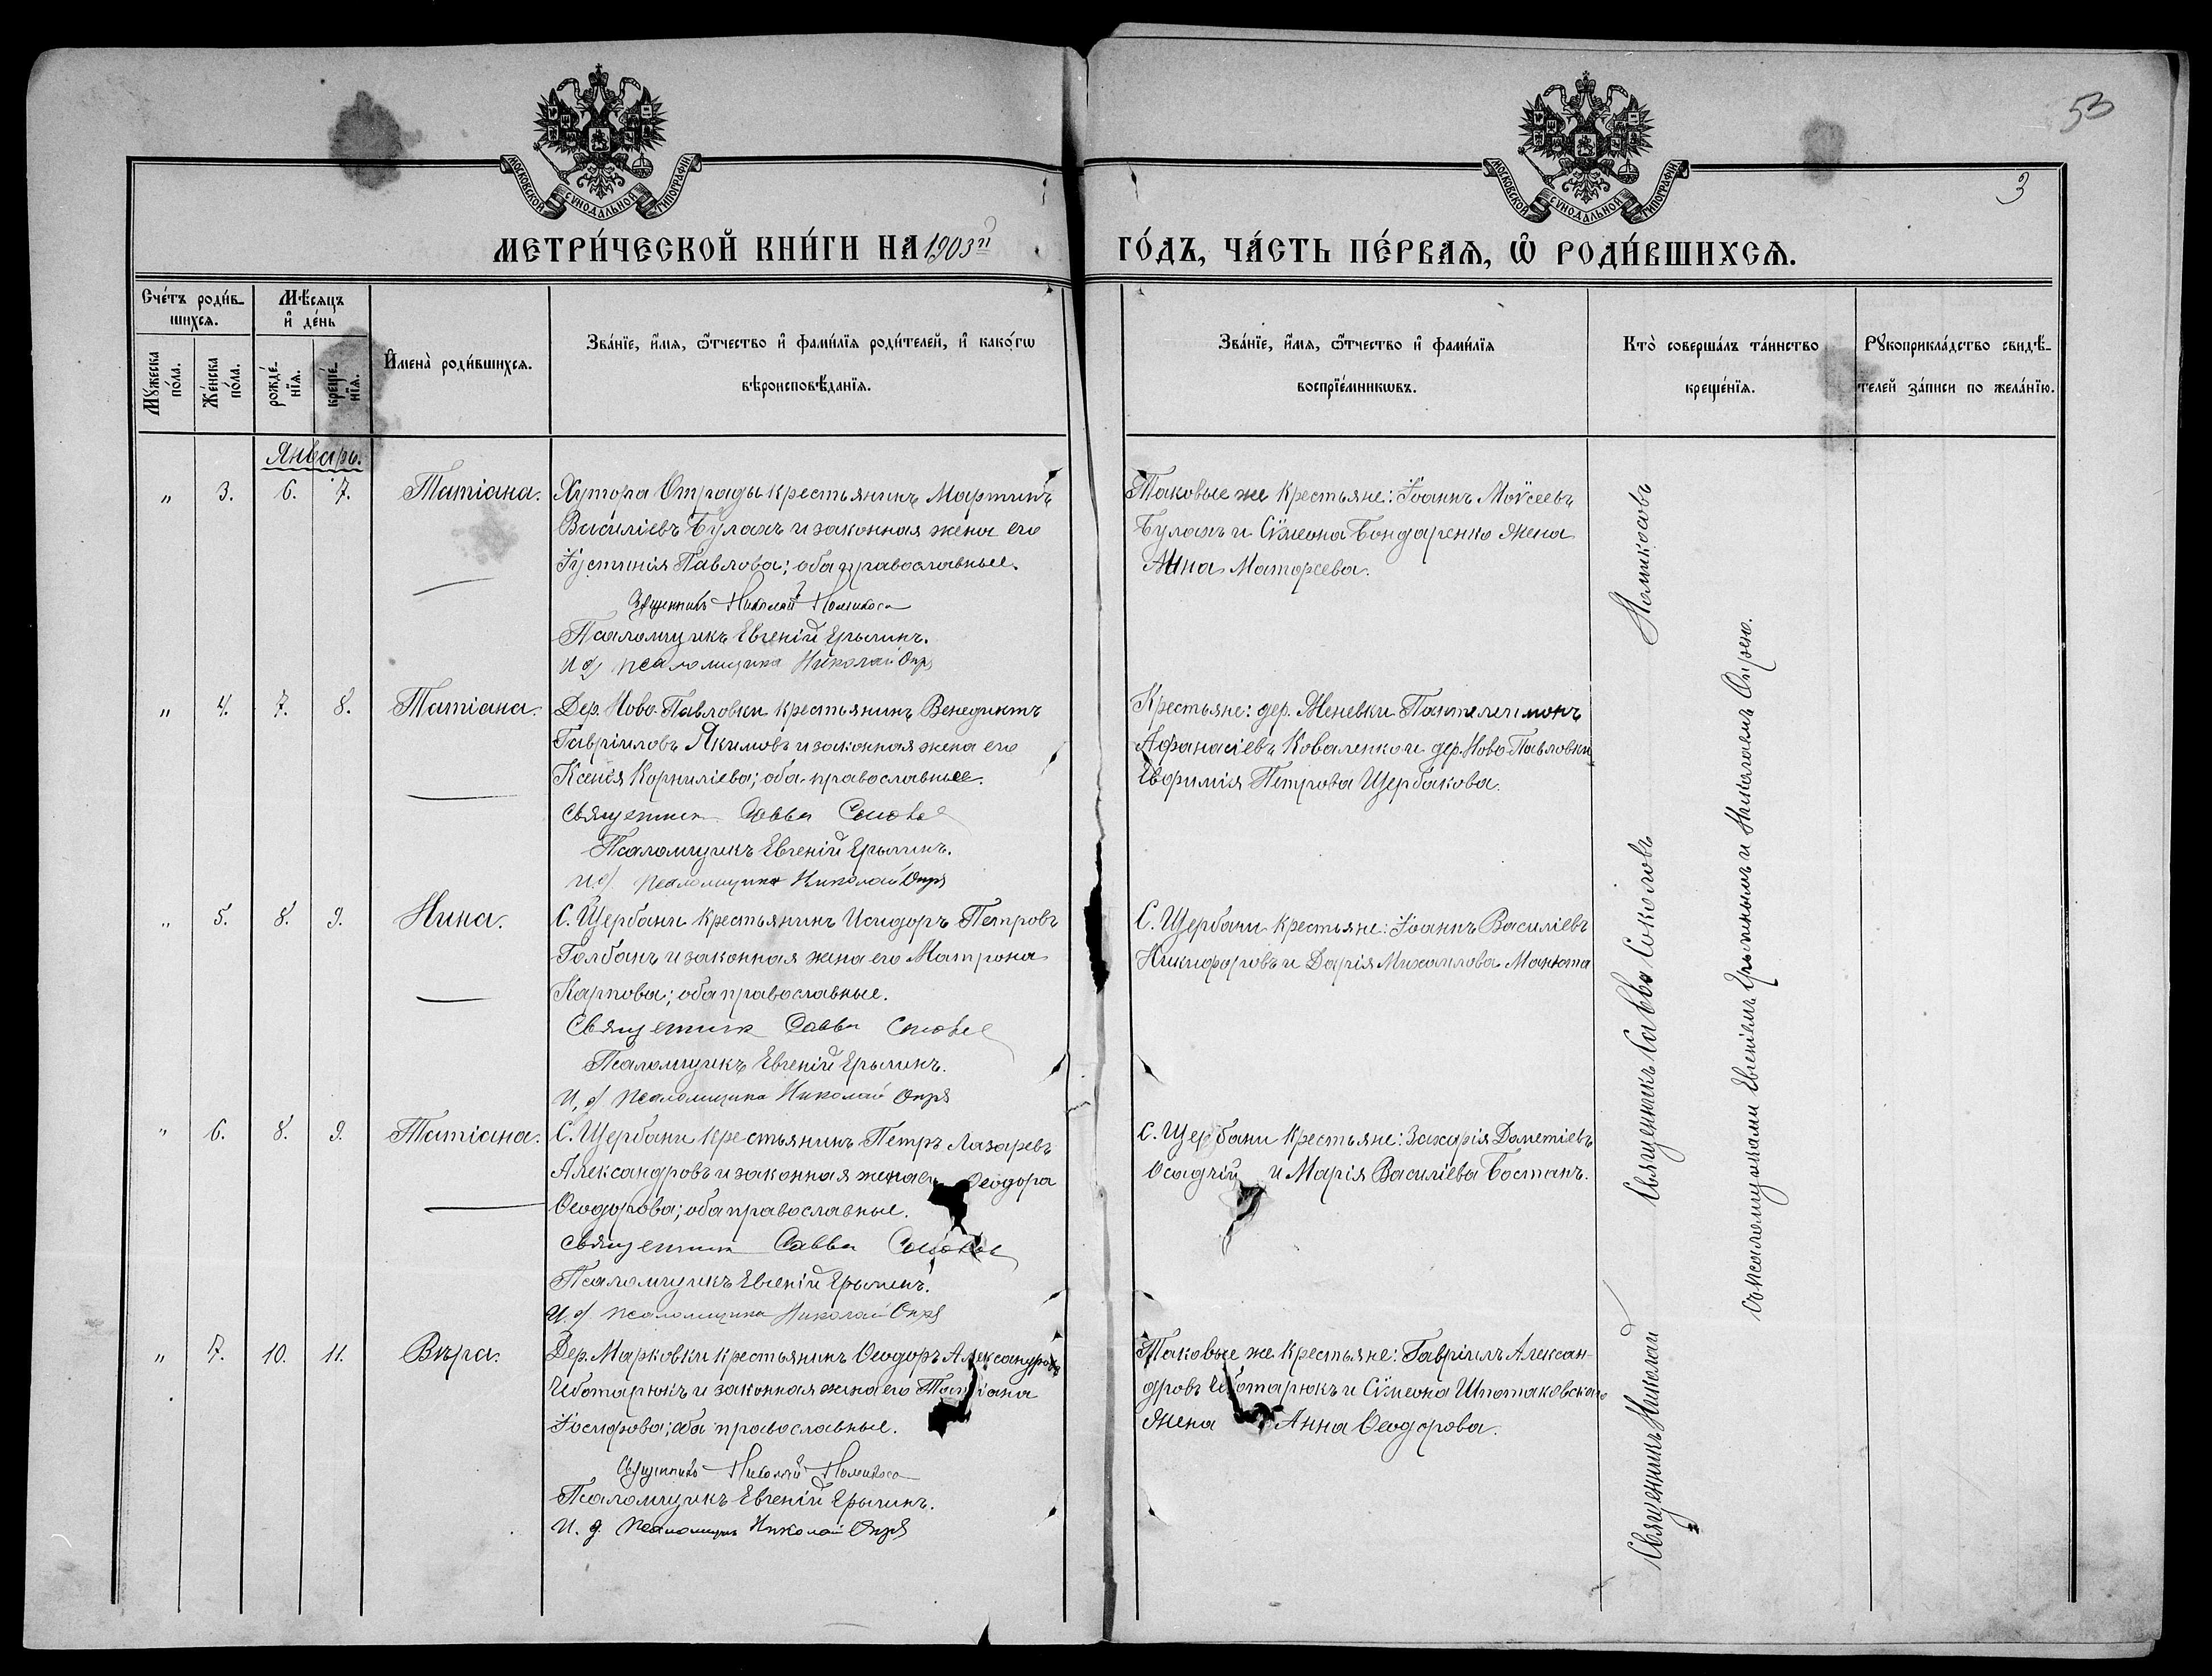 53
3
МОСКОВСКОЙ СУНОДАЛЬНОЙ ТИПОГРАФІИ
МОСКОВСКОЙ СУНОДАЛЬНОЙ ТИПОГРАФІИ
МЕТРИ́ЧЕСКОЙ КНИ́ГИ НА 1903й ГО́ДЪ, ЧА́СТЬ ПЕ́РВАѦ, Ѿ РОДИ́ВШИХСѦ.
Сче́тъ роди́в-
шихсѧ.
Мꙋ́жеска по́ла.
Же́нска по́ла.
Мѣ́сяцъ
и҆ де́нь
рожде́-
нїѧ.
креще́-
нїѧ.
И҆мена̀ роди́вшихсѧ.
Зва́нїе, и҆́мѧ, ѻ҆́тчество и҆ фами́лїѧ роди́телей, и҆ како́гѡ
вѣроисповѣ́данїѧ.
Зва́нїе, и҆́мѧ, ѻ҆́тчество и҆ фами́лїѧ
воспрїе́мникѡвъ.
Кто̀ соверша́лъ та́инство
креще́нїѧ.
Рꙋкоприкла́дство свидѣ́-
телей за́писи по жела́нїю.
Январь.
" 3. 6. 7. Татіана. Хутора Отрады крестьянинъ Мартинъ
Василіевъ Булахъ и законная жена его
Іустинія Павлова; оба православные.
Священникъ Николай
Псаломщикъ Евгеній
И д псаломщика Николай Опря
Таковые же крестьяне: Іоаннъ Моѵсеевъ
Булахъ и Сѵмеона Бондаренко жена
Анна Маторсева.
" 4. 7. 8. Татіана. Дер. Ново-Павловки крестьянинъ Венедиктъ
Гавріиловъ Якимовъ и законная жена его
Ксенія Корниліева; оба православные.
Священник Савва
Псаломщикъ Евгеній
И. д. псаломщика Николай Опря
Крестьяне: дер. Пантелеимонъ
Афанасіевъ Коваленко и дер. Ново-Павловки
Евфимія Петрова Щербакова.
" 5. 8. 9. Нина. С. Щербани крестьянинъ Исидоръ Петровъ
Голбанъ и законная жена его Матрона
Карпова; оба православные.
Священник Савва
Псаломщикъ Евгеній
И. д. псаломщика Николай Опря
С. Щербани крестьяне: Іоаннъ Василіевъ
Никифоровъ и Дарія Михаилова Манюта
" 6. 8. 9. Татіана. С. Щербани крестьянинъ Петръ Лазаревъ
Александровъ и законная жена Ѳеодора
Ѳеодорова; оба православные.
Священник Савва
Псаломщикъ Евгеній
И. д. псаломщика Николай Опря
С. Щербани крестьяне: Захарія Дометіевъ
Осадчій и Марія Василіева Бостанъ.
" 7. 10. 11. Вѣра. Дер. Марковки крестьянинъ Ѳеодоръ Александровъ
Чботарюкъ и законная жена его Татіана
Іосифова; оба православные.
Священникъ Николай
Псаломщикъ Евгеній
И. д. псаломщ Николай Опря
Таковые же крестьяне: Гавріилъ Алексан-
дровъ Чботарюкъ и Сѵмеона Шпотаковскаго
жена Анна Ѳеодорова.
Священникъ Николай Священникъ Савва Соколовъ
съ псаломщиками Евгеніемъ и Николаемъ Опрею.